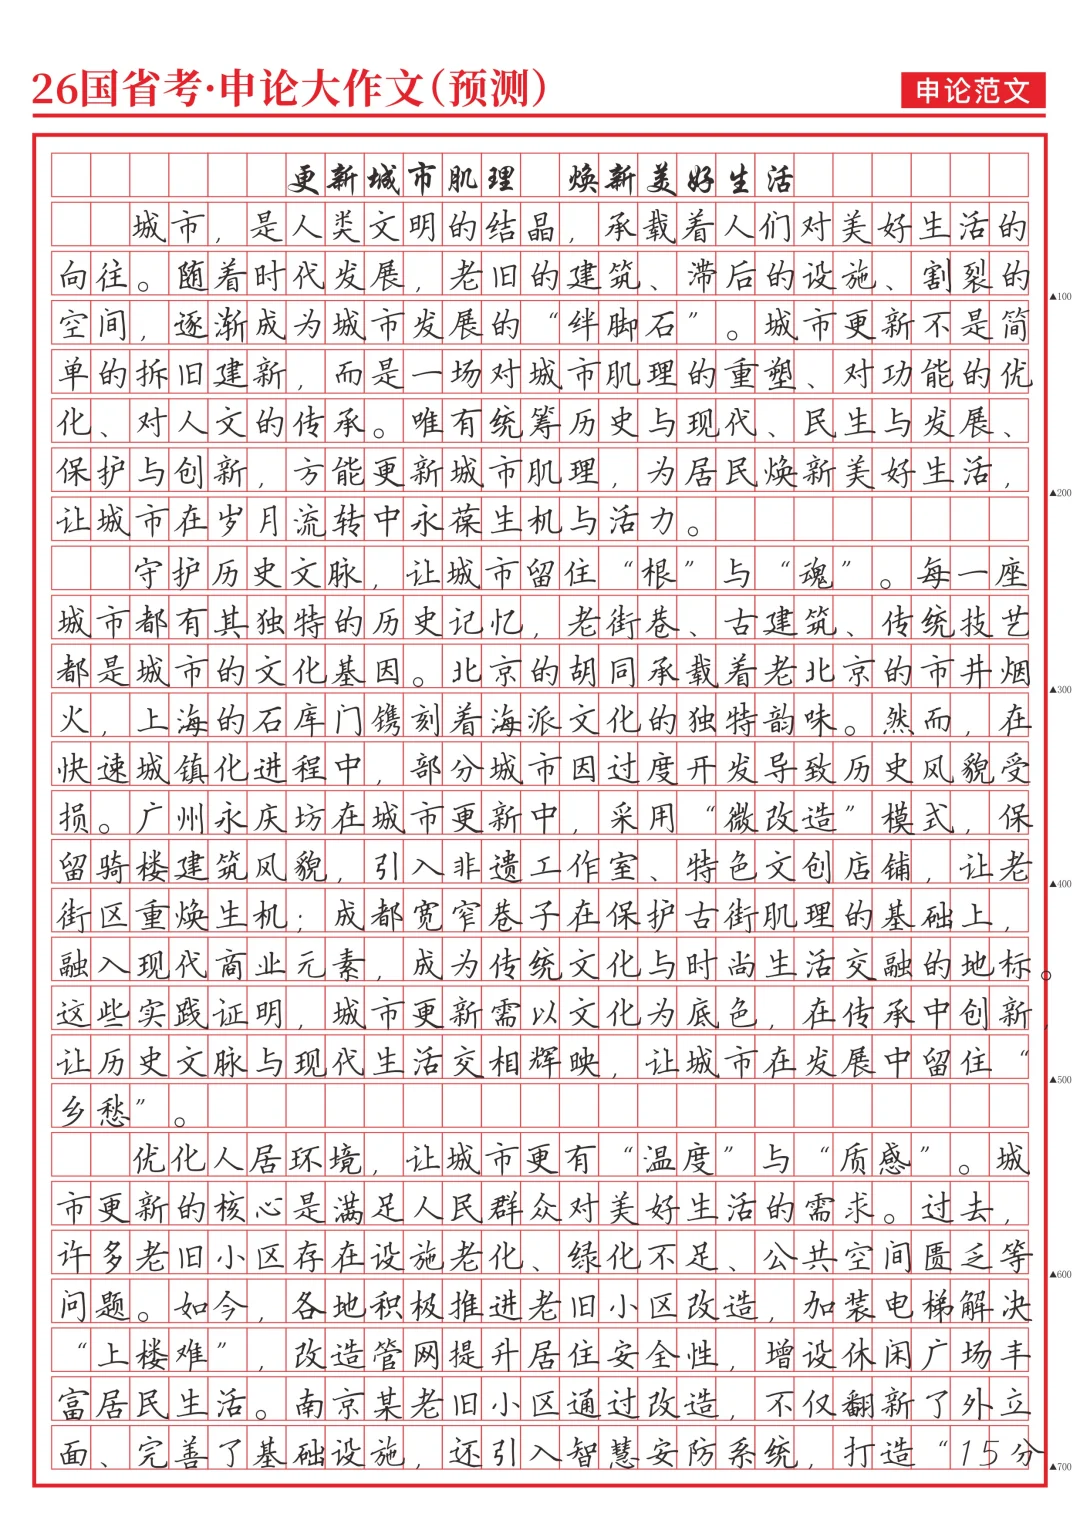 26国省考·申论大作文(预测)
申论范文
更新城市肌理 焕新美好生活
城市，是人类文明的结晶，承载着人们对美好生活的
向往。随着时代发展，老旧的建筑、滞后的设施、割裂的
▲100
空间，逐渐成为城市发展的“绊脚石”。城市更新不是简
单的拆旧建新，而是一场对城市肌理的重塑、对功能的优
化、对人文的传承。唯有统筹历史与现代、民生与发展、
保护与创新，方能更新城市肌理，为居民焕新美好生活，
▲200
让城市在岁月流转中永葆生机与活力。
守护历史文脉，让城市留住“根”与“魂”。每一座
城市都有其独特的历史记忆，老街巷、古建筑、传统技艺
都是城市的文化基因。北京的胡同承载着老北京的市井烟
▲300
火，上海的石库门镌刻着海派文化的独特韵味。然而，在
快速城镇化进程中，部分城市因过度开发导致历史风貌受
损。广州永庆坊在城市更新中，采用“微改造”模式，保
留骑楼建筑风貌，引入非遗工作室、特色文创店铺，让老
▲400
街区重焕生机；成都宽窄巷子在保护古街肌理的基础上，
融入现代商业元素，成为传统文化与时尚生活交融的地标。
这些实践证明，城市更新需以文化为底色，在传承中创新，
让历史文脉与现代生活交相辉映，让城市在发展中留住“
▲500
乡愁”。
优化人居环境，让城市更有“温度”与“质感”。城
市更新的核心是满足人民群众对美好生活的需求。过去，
许多老旧小区存在设施老化、绿化不足、公共空间匮乏等
▲600
问题。如今，各地积极推进老旧小区改造，加装电梯解决
“上楼难”，改造管网提升居住安全性，增设休闲广场丰
富居民生活。南京某老旧小区通过改造，不仅翻新了外立
面、完善了基础设施，还引入智慧安防系统，打造“15分
▲700